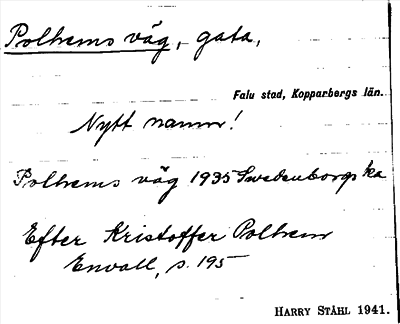 Polhems väg, gata,
Falu stad, Kopparbergs län.
Nytt namn!
Polhems väg 1935 Swedenborgs ka
Efter Kristoffer Polhem
Envall, s. 195
HARRY STÅHL 1941.